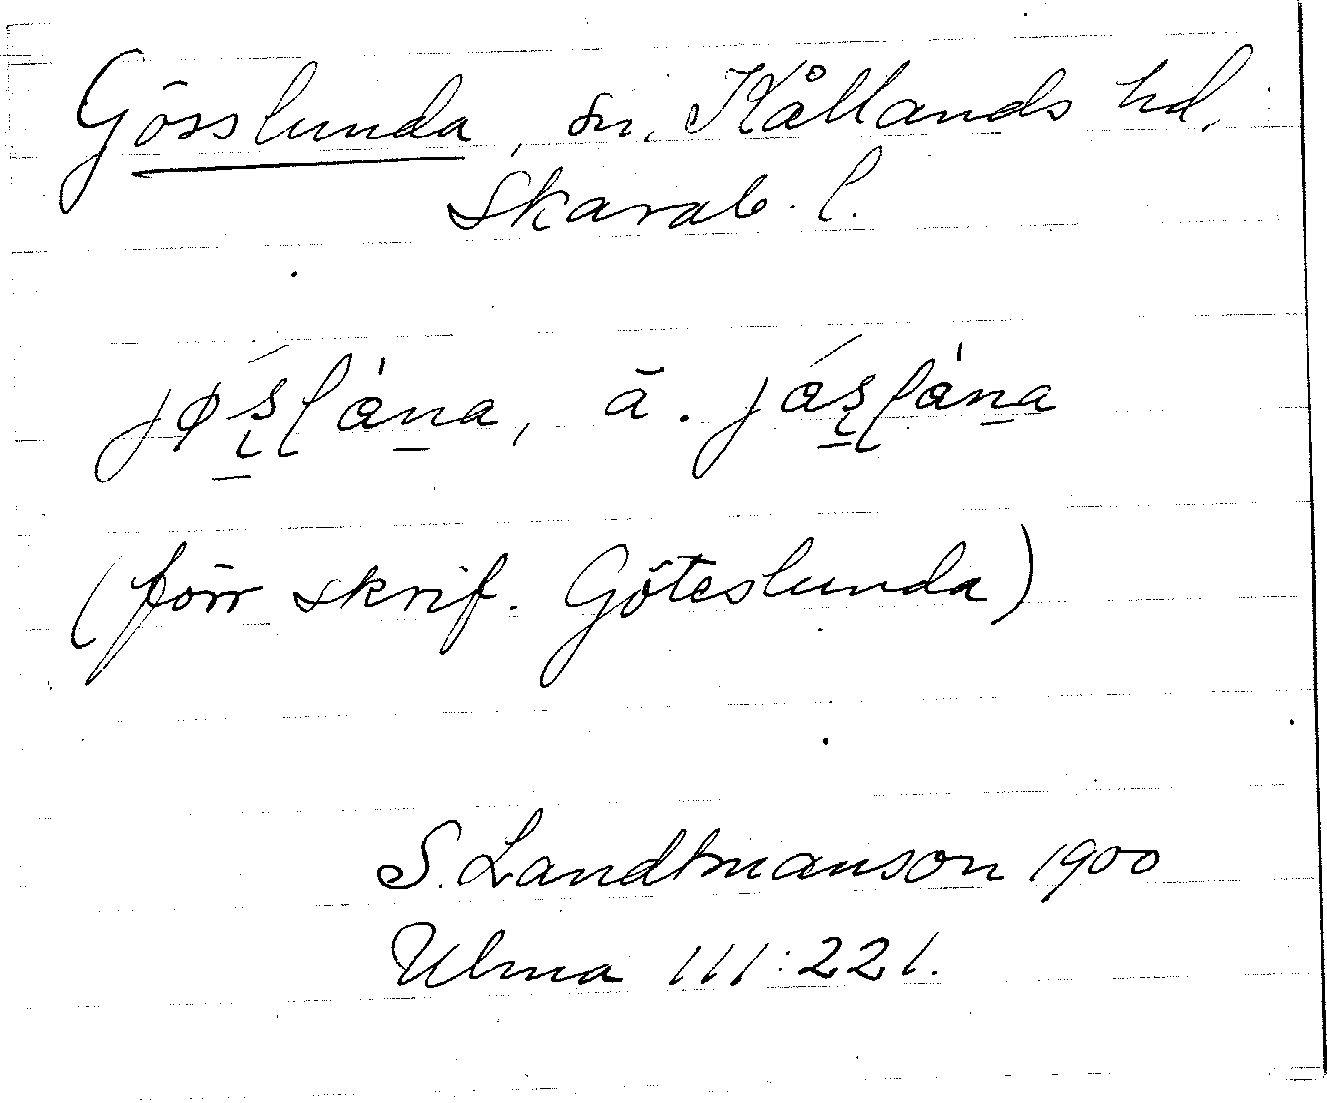 Gösslunda, sn. Kållands hd,
Skarab. l.
jøʂlȧna, ä. jɑʂlȧna
(förr skrif. Göteslunda)
S. Landtmanson 1900
Ulma 111:221.